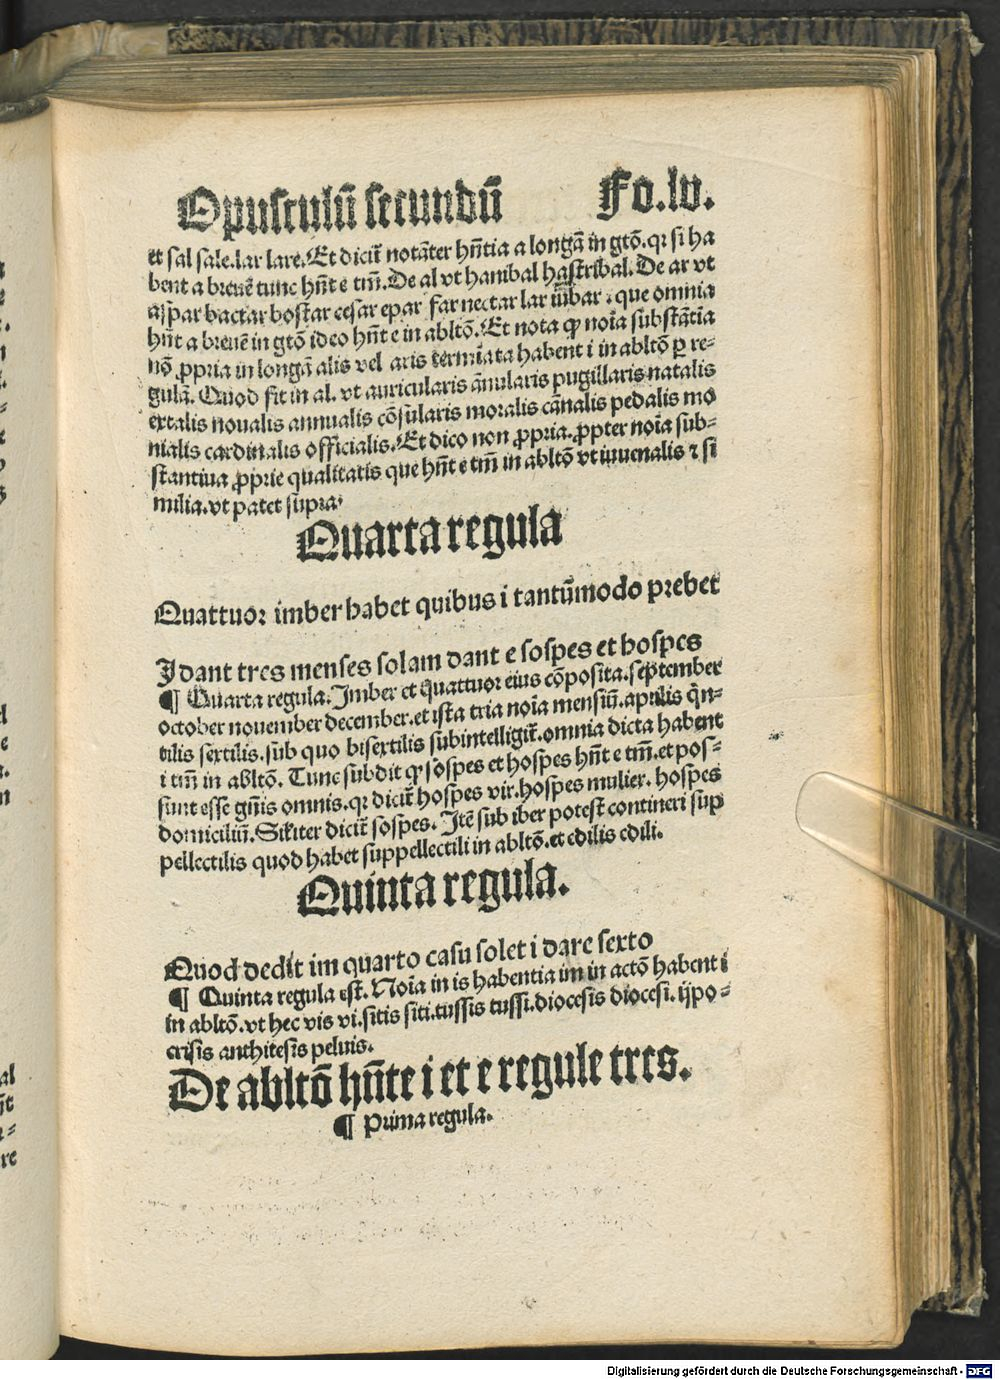 Opusculū secundū Fo.lv.
et sal sale.lar lare.Et dicūt notāter hn̄tia a longā in gtō.qꝛ si ha
bent a breuē tunc hn̄t e tm̄.De al vt hanibal hastribal.De ar vt
aspar bactar bostar cesar epar far nectar lar iubar.que omnia
hn̄t a breuē in gtō ideo hn̄t e in abltō.Et nota ꝙ noīa substātia
nō ꝓpria in longā alis vel aris termīata habent i in abltō ꝑ re-
gulā. Quod sit in al. vt auricularis ānularis pugillaris natalis
extalis noualis annualis cōsularis moralis cānalis pedalis mo
nialis cardinalis officialis.Et dico non ꝓpria.ꝓpter noīa sub-
stantiua ꝓprie qualitatis que hn̄t e tm̄ in abltō vt iuuenalis ⁊ si
milia.vt patet supra.
Quarta regula
Quattuoꝛ imber habet quibus i tantūmodo prebet
I dant tres menses solam dant e sospes et hospes
¶ Quarta regula.Imber et quattuoꝛ eius cōposita.september
october nouember december.et ista tria noīa mensiū.aprilis qn̄-
tilis sextilis.sub quo bisextilis subintelligit̄.omnia dicta habent
i tm̄ in abltō. Tunc subdit ꝙ sospes et hospes hn̄t e tm̄.et pos-
sunt esse gn̄is omnis.qꝛ dicit̄ hospes vir.hospes mulier. hospes
domiciliū.Silꝉiter dicit̄ sospes. Itē sub iber potest contineri sup
pellectilis quod habet suppellectili in abltō.et edilis edili.
Quinta regula.
Quod dedit im quarto casu solet i dare sexto
¶ Quinta regula est. Noīa in is habentia im in actō habent i
in abltō.vt hec vis vi.sitis siti.tussis tussi.diocesis diocesi.ijpo-
crisis anthitesis peluis.
De abltō hn̄te i et e regule tres.
¶ Prima regula.
Digitalisierung gefördert durch die Deutsche Forschungsgemeinschaft - DFG